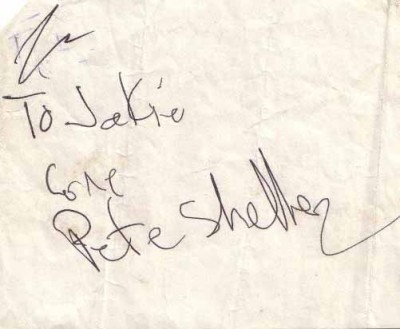 To Jakie
Love
Pete Shelley